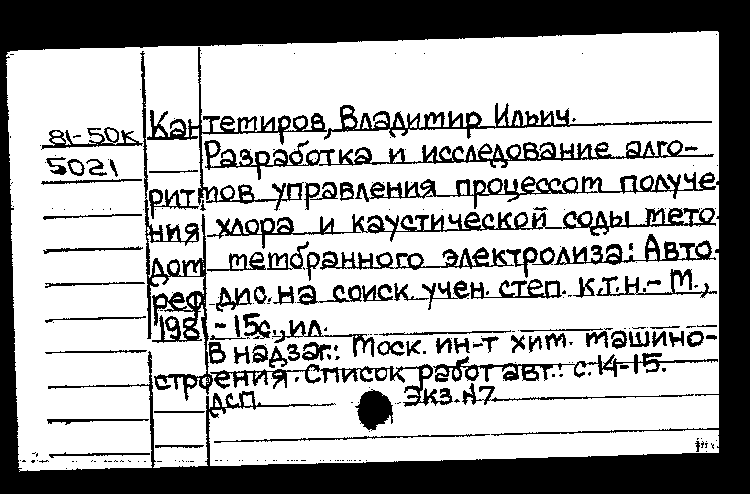 81-50к
5021
Кантемиров, Владимир Ильич.
Разработка и исследование алго-
ритмов управления процессом получе
ния хлора и каустической соды мето
дом мембранного электролиза: Авто-
реф дис. на соиск. учен. степ. к.т.н. - М.,
1981 - 15с., ил.
В надзаг.: Моск. ин-т хим. машино-
строения. Список работ авт.: с. 14-15.
ДСП. Экз. N7.